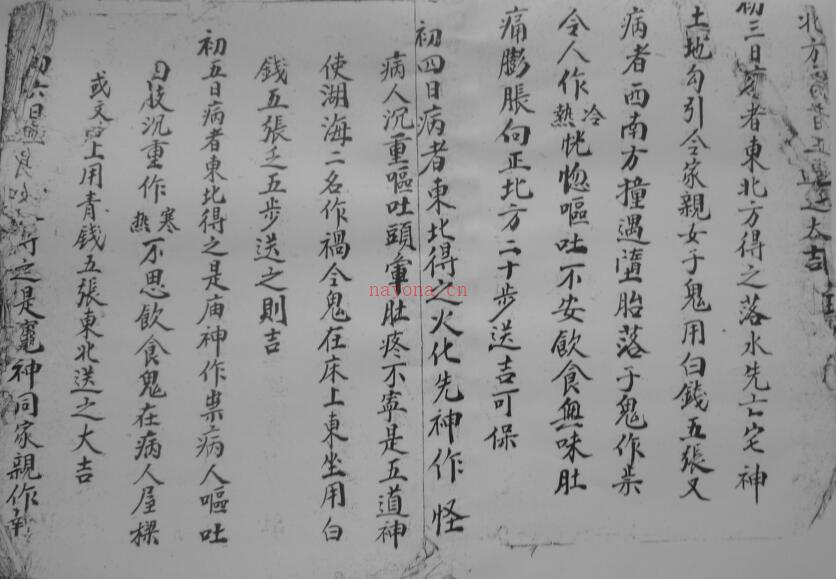 北方送之大吉
初三日病者東北方得之落水先亡宅神
土地勾引令家親女子鬼用白錢五張又
病者西南方撞遇墮胎落子鬼作祟
令人作冷熱恍惚嘔吐不安飲食無味肚
痛膨脹向正北方二十步送吉可保
初四日病者東北得之火化先神作怪
病人沉重嘔吐頭暈肚疼不寧是五道神
使湖海二名作禍令鬼在床上東坐用白
錢五張之五步送之則吉
初五日病者東北得之是庙神作祟病人嘔吐
四肢沉重作寒熱不思飲食鬼在病人屋樑
或文字上用青錢五張東北送之大吉
初六日得之是竈神同家親作
nayona.cn